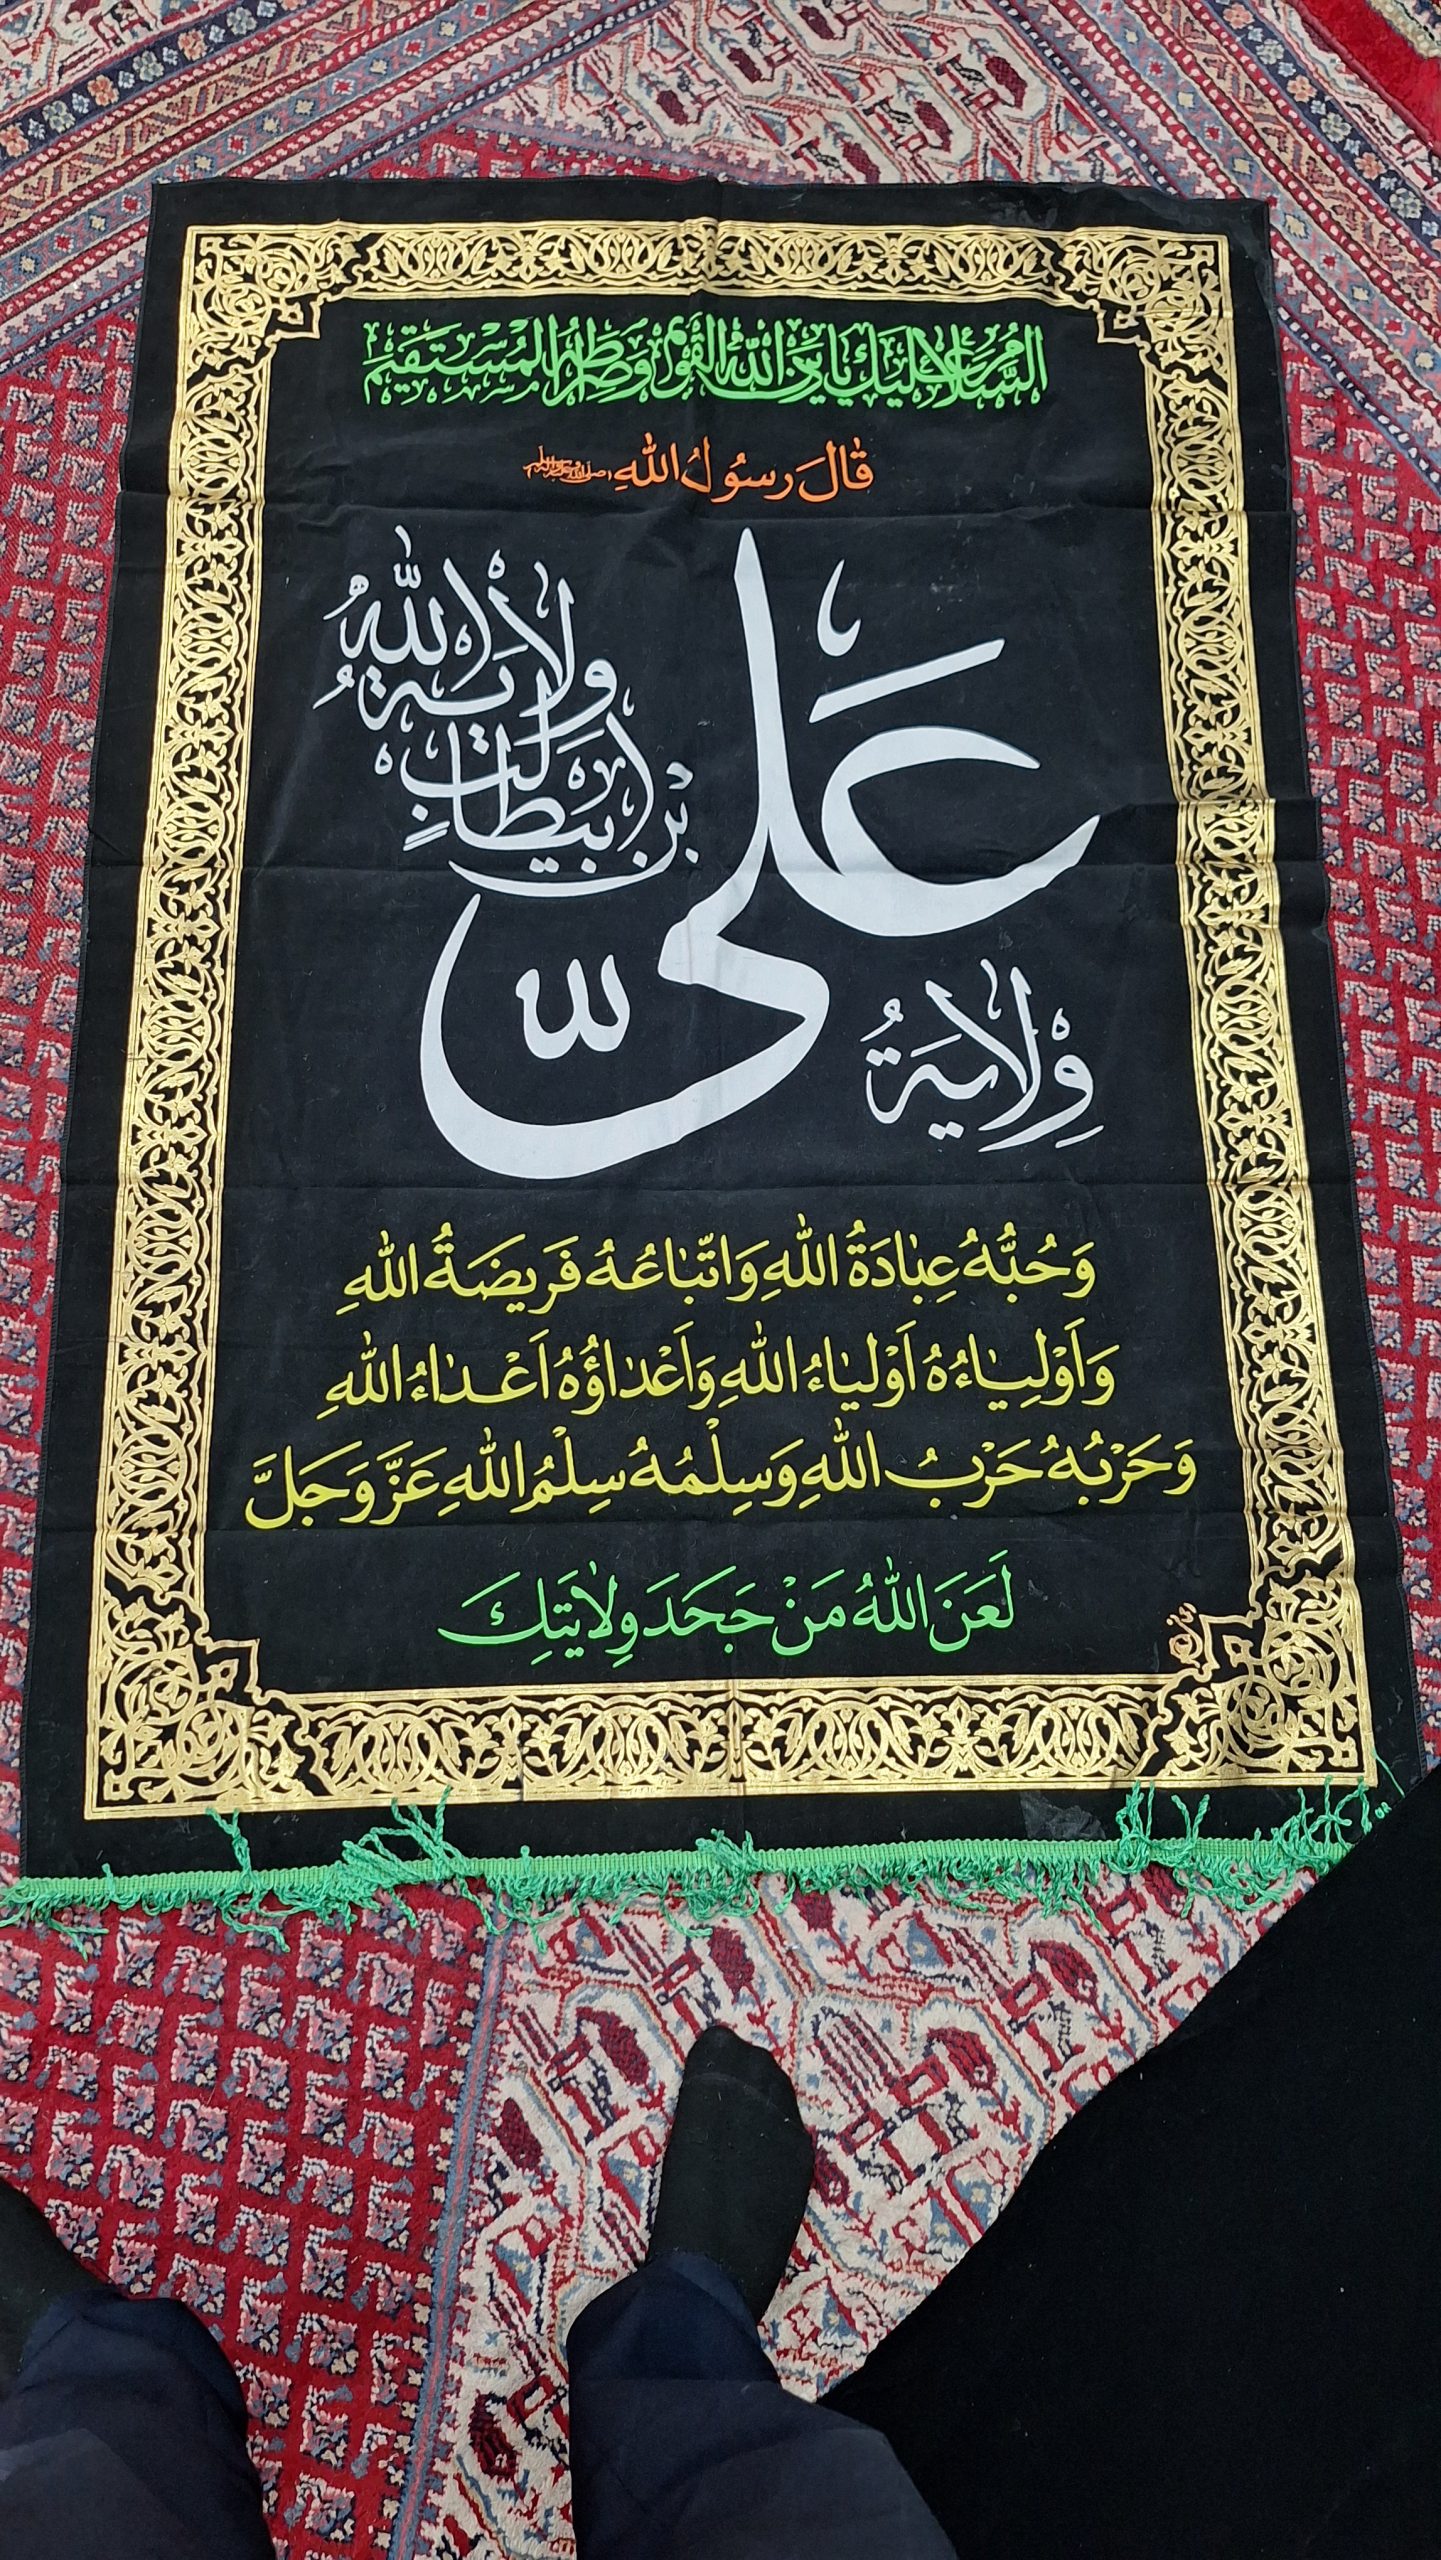 السَّلامُ عَلَيْكَ يَا دِينَ اللهِ الْقَوِيمَ وَصِرَاطَهُ الْمُسْتَقِيمَ
قَالَ رَسُولُ اللهِ
وِلايَةُ عَلىِّ بْنِ ابيطالِبٍ وِلايَةُ اللهِ
وَحُبُّهُ عِبٰادَةُ اللهِ وَاتّبٰاعُهُ فَريضَةُ اللهِ
وَاَوْلِيٰاءُهُ اَوْلِيٰاءُ اللهِ وَاَعْدٰاؤُهُ اَعْدٰاءُ اللهِ
وَحَرْبُهُ حَرْبُ اللهِ وَسِلْمُهُ سِلْمُ اللهِ عَزَّ وَجَلَّ
لَعَنَ اللهُ مَنْ جَحَدَ وِلايَتِكَ